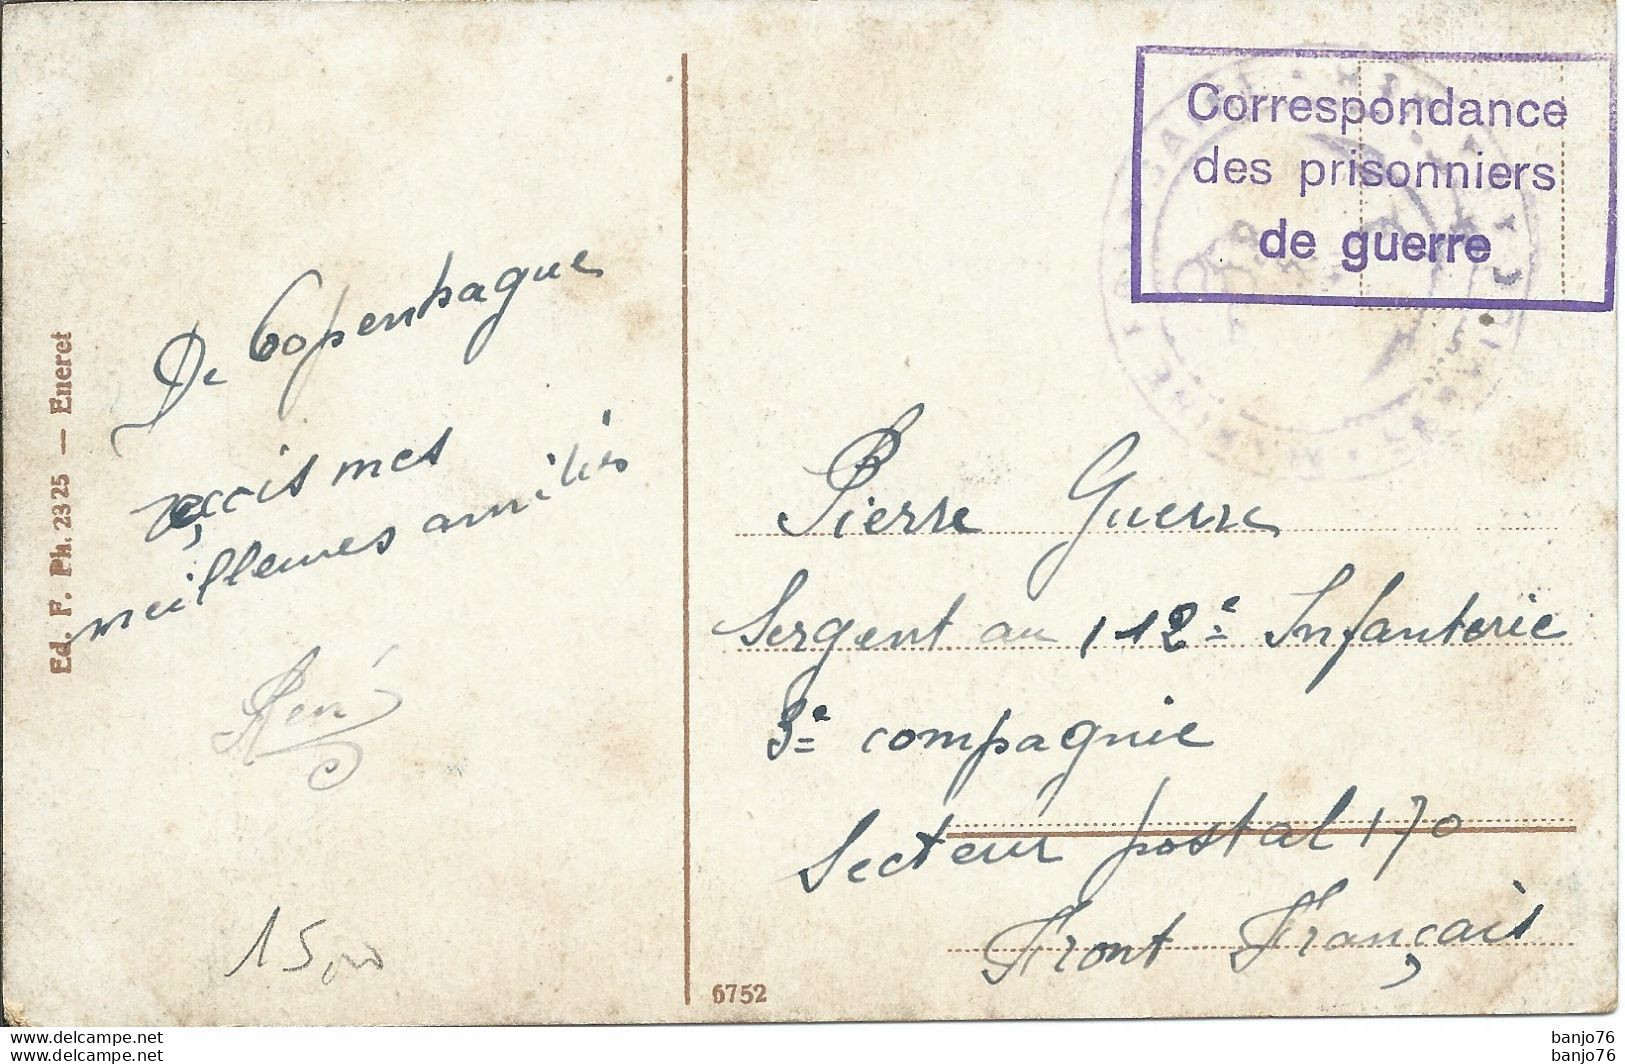 Ed. F. Ph. 2325 — Eneret
De Copenhague
reçois mes
meilleures amitiés
René
15,00
Correspondance
des prisonniers
de guerre
Pierre Guerre
Sergent au 112e Infanterie
3e compagnie
Secteur postal 170
Front Français
6752
www.delcampe.net
www.delcampe.net
banjo76
banjo76